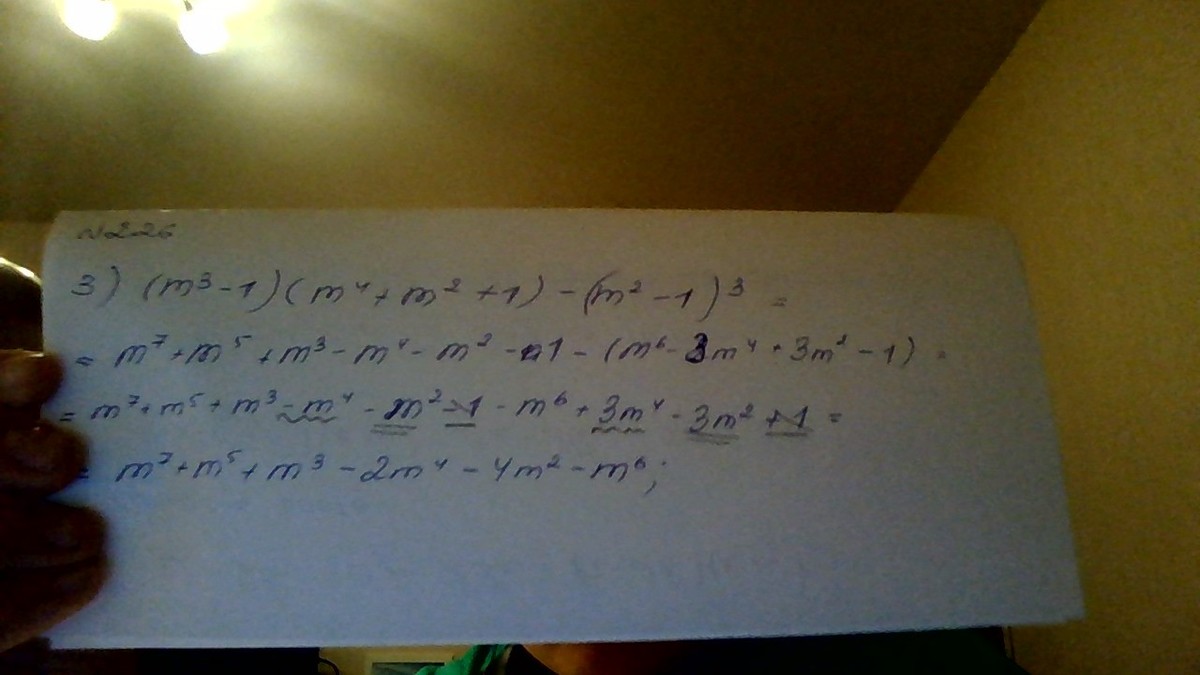 №226
3) (m³-1)(m⁴+m²+1)-(m²-1)³ =
= m⁷+m⁵+m³-m⁴-m²-1-(m⁶-3m⁴+3m²-1) =
= m⁷+m⁵+m³-m⁴-m²-1-m⁶+3m⁴-3m²+1 =
= m⁷+m⁵+m³-2m⁴-4m²-m⁶;